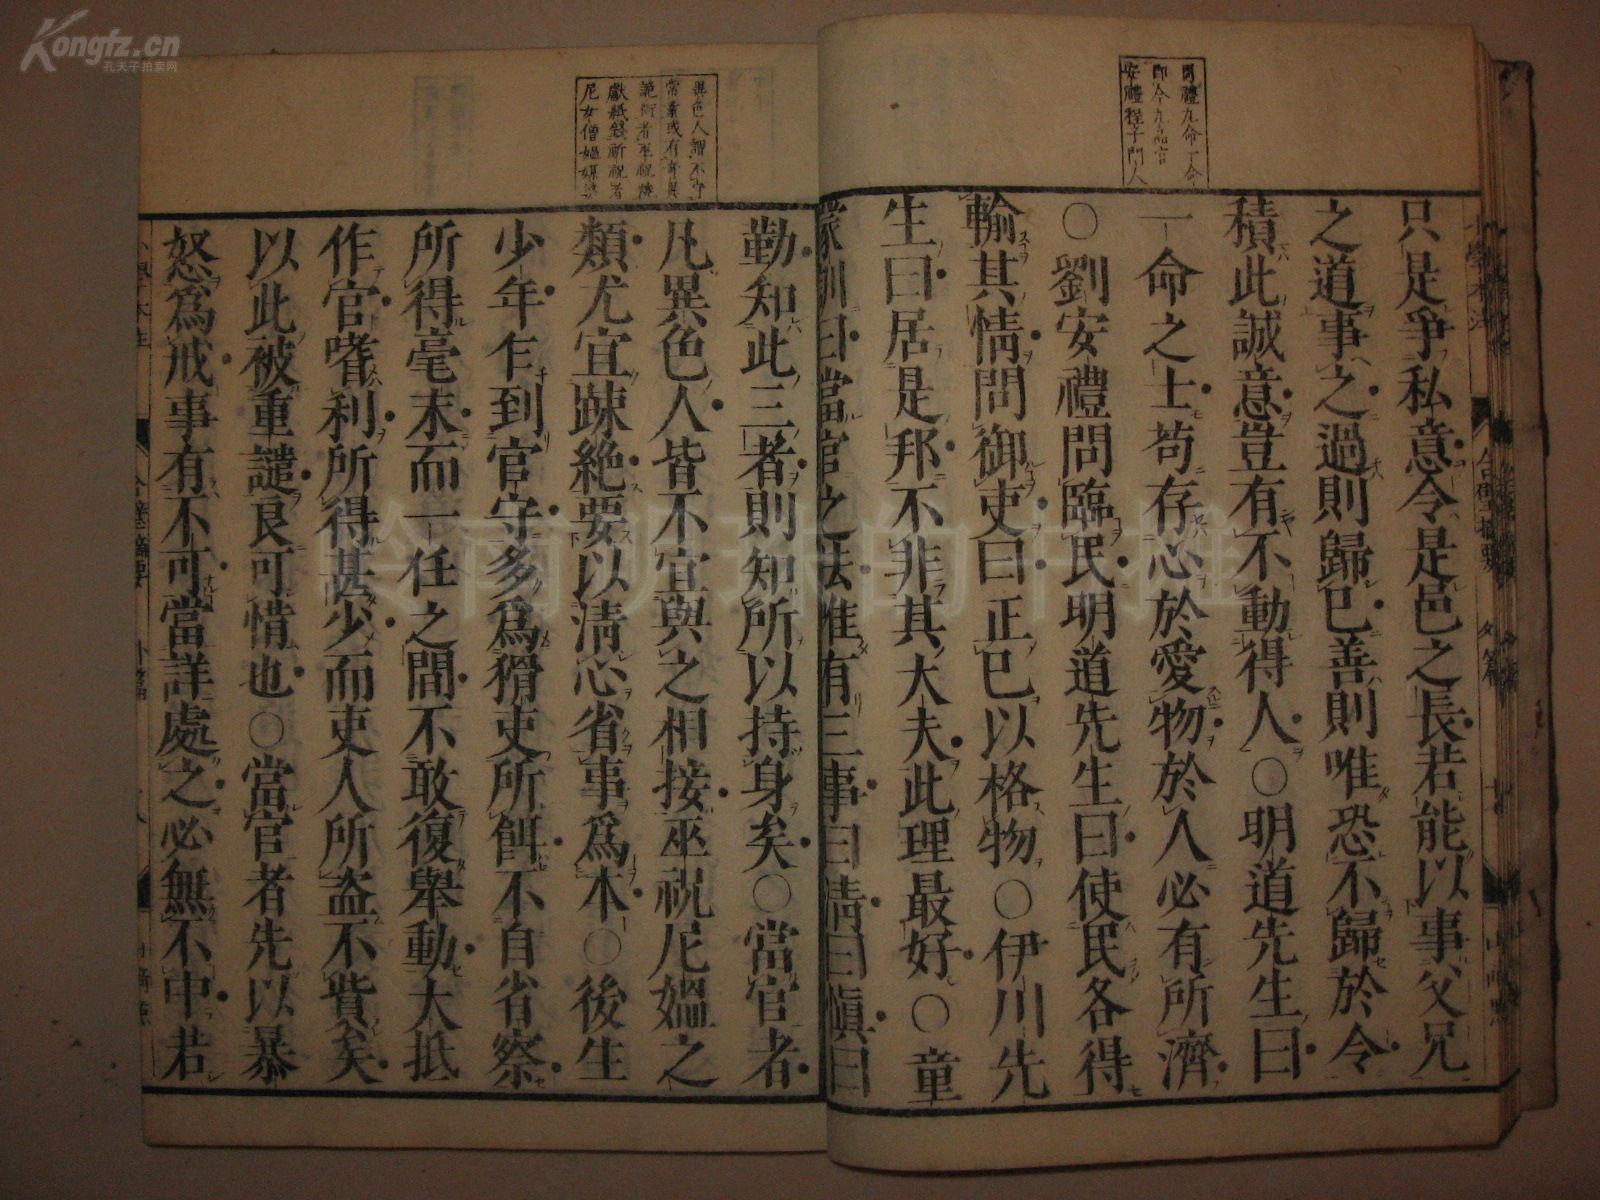 周禮九命一命
即今九品官
安禮程子門人
只是爭私意令是邑之長若能以事父兄
之道事之過則歸已善則唯恐不歸於令
積此誠意豈有不動得人○明道先生曰
一命之士苟存心於愛物於人必有所濟
○劉安禮問臨民明道先生曰使民各得
輸其情問御吏曰正已以格物○伊川先
生曰居是邦不非其大夫此理最好○童
蒙訓曰當官之法唯有三事曰清曰愼曰
異色人謂不守
常業或有奇異
獻紙錢祈祝者
勤知此三者則知所以持身矣○當官者
凡異色人皆不宜與之相接巫祝尼媼之
類尤宜踈絶要以淸心省事爲本○後生
少年乍到官守多爲猾吏所餌不自省察
所得毫末而一任之間不敢復舉動大抵
作官嗜利所得甚少而吏人所盗不貲矣
以此被重譴良可惜也○當官者先以暴
怒爲戒事有不可當詳處之必無不中若
Kongfz.cn
孔夫子拍卖网